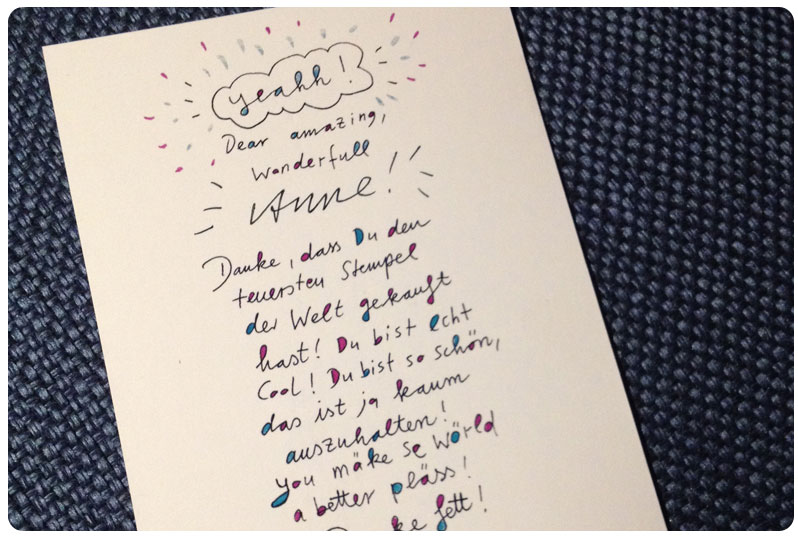 yeahh!
Dear amazing,
wonderfull
Anne!
Danke, dass Du den
teuersten Stempel
der Welt gekauft
hast! Du bist echt
Cool! Du bist so schön,
das ist ja kaum
auszuhalten!
you mäke se wörld
a better pläss!
fett!